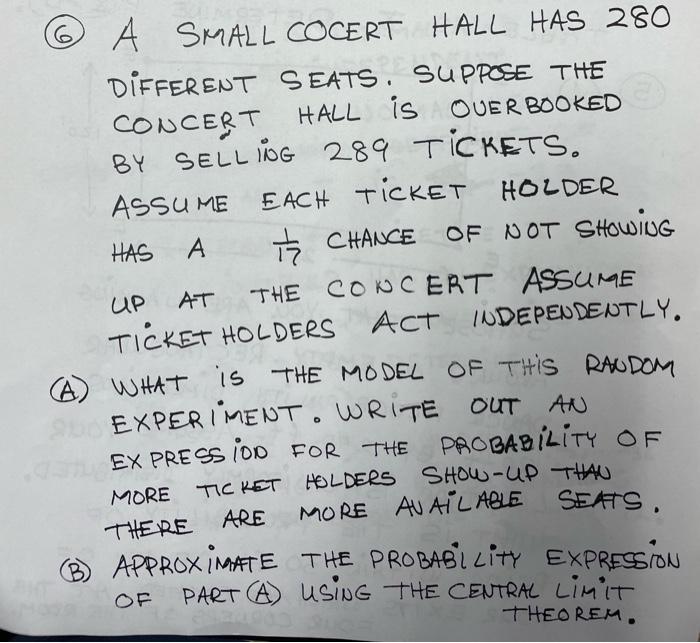 6 A SMALL COCERT HALL HAS 280
DIFFERENT SEATS. SUPPOSE THE
CONCERT HALL IS OVERBOOKED
BY SELLING 289 TICKETS.
ASSUME EACH TICKET HOLDER
HAS A 1/17 CHANCE OF NOT SHOWING
UP AT THE CONCERT ASSUME
TICKET HOLDERS ACT INDEPENDENTLY.
(A) WHAT IS THE MODEL OF THIS RANDOM
EXPERIMENT. WRITE OUT AN
EXPRESSION FOR THE PROBABILITY OF
MORE TICKET HOLDERS SHOW-UP THAN
THERE ARE MORE AVAILABLE SEATS.
(B) APPROXIMATE THE PROBABILITY EXPRESSION
OF PART (A) USING THE CENTRAL LIMIT
THEOREM.